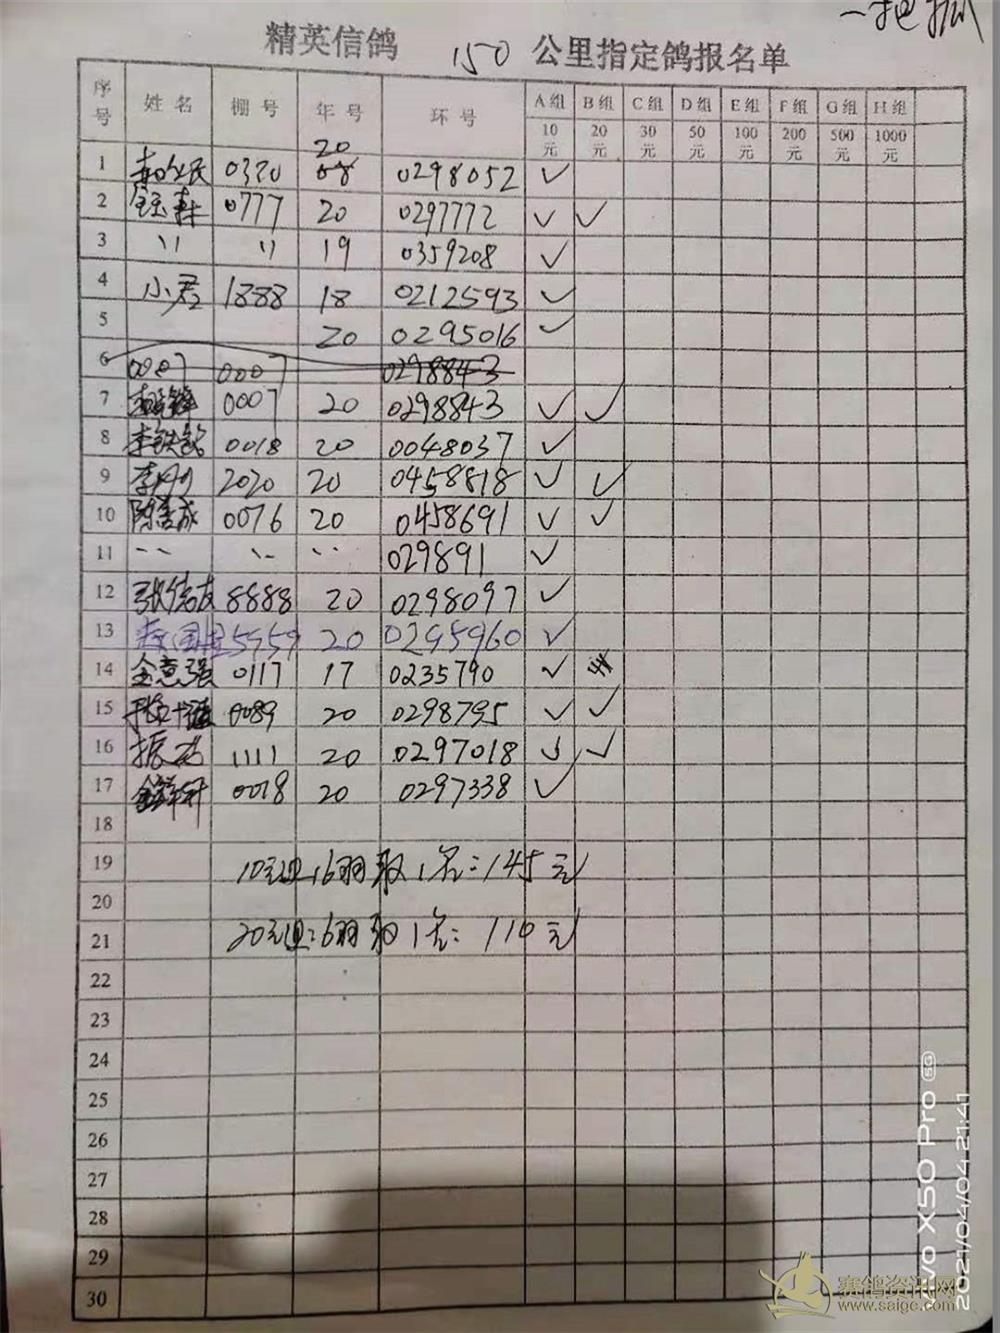 一把抓
精英信鸽 150 公里指定鸽报名单
序号 姓名 棚号 年号 环号 A组 B组 C组 D组 E组 F组 G组 H组
10元 20元 30元 50元 100元 200元 500元 1000元
20
1 0320 08 0298052 ✓
2 0777 20 0297772 ✓ ✓
3 〃 〃 19 0359208 ✓
4 小君 1888 18 0212593 ✓
5 20 0295016 ✓
6 0007 0007 0298843
7 0007 20 0298843 ✓ ✓
8 李铁 0018 20 0048037 ✓
9 李 2020 20 0458818 ✓ ✓
10 陈 成 0076 20 0458691 ✓ ✓
11 〃 〃 〃 029891 ✓
12 张 友 8888 20 0298097 ✓
13 国 5959 20 0295960 ✓
14 金意强 0117 17 0235790 ✓
15 0089 20 0298795 ✓ ✓
16 振 1111 20 0297018 ✓ ✓
17 0018 20 0297338 ✓
18
19 10元组16羽取1名:145元
20
21 20元组:6羽取1名:110元
22
23
24
25
26
27
28
29
30
vivo X50 Pro 5G
2021/04/04 21:41
赛鸽资讯网
www.saige.com